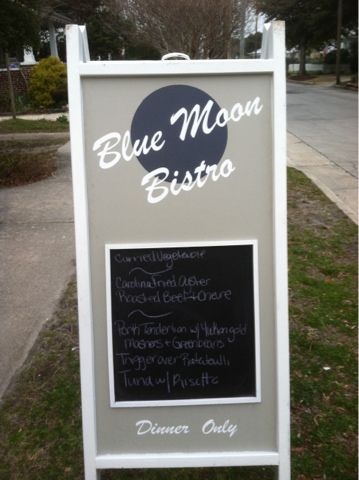 Blue Moon
Bistro
Curried Vegetable
Carolina Fried Oyster
Roasted Beet + Chevre
Pork Tenderloin w/ Yukon gold
Mashers + Green beans
Trigger over
Tuna w/ Risotto
Dinner Only